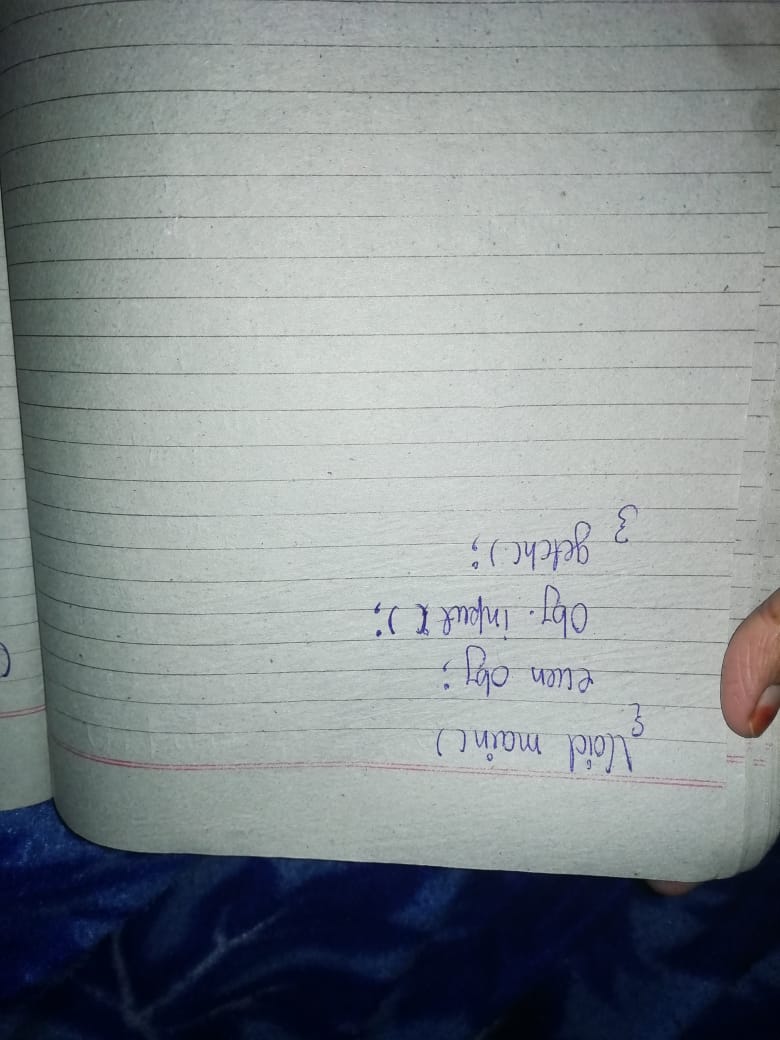 Void main()
{
even obj;
Obj. input();
getch();
}